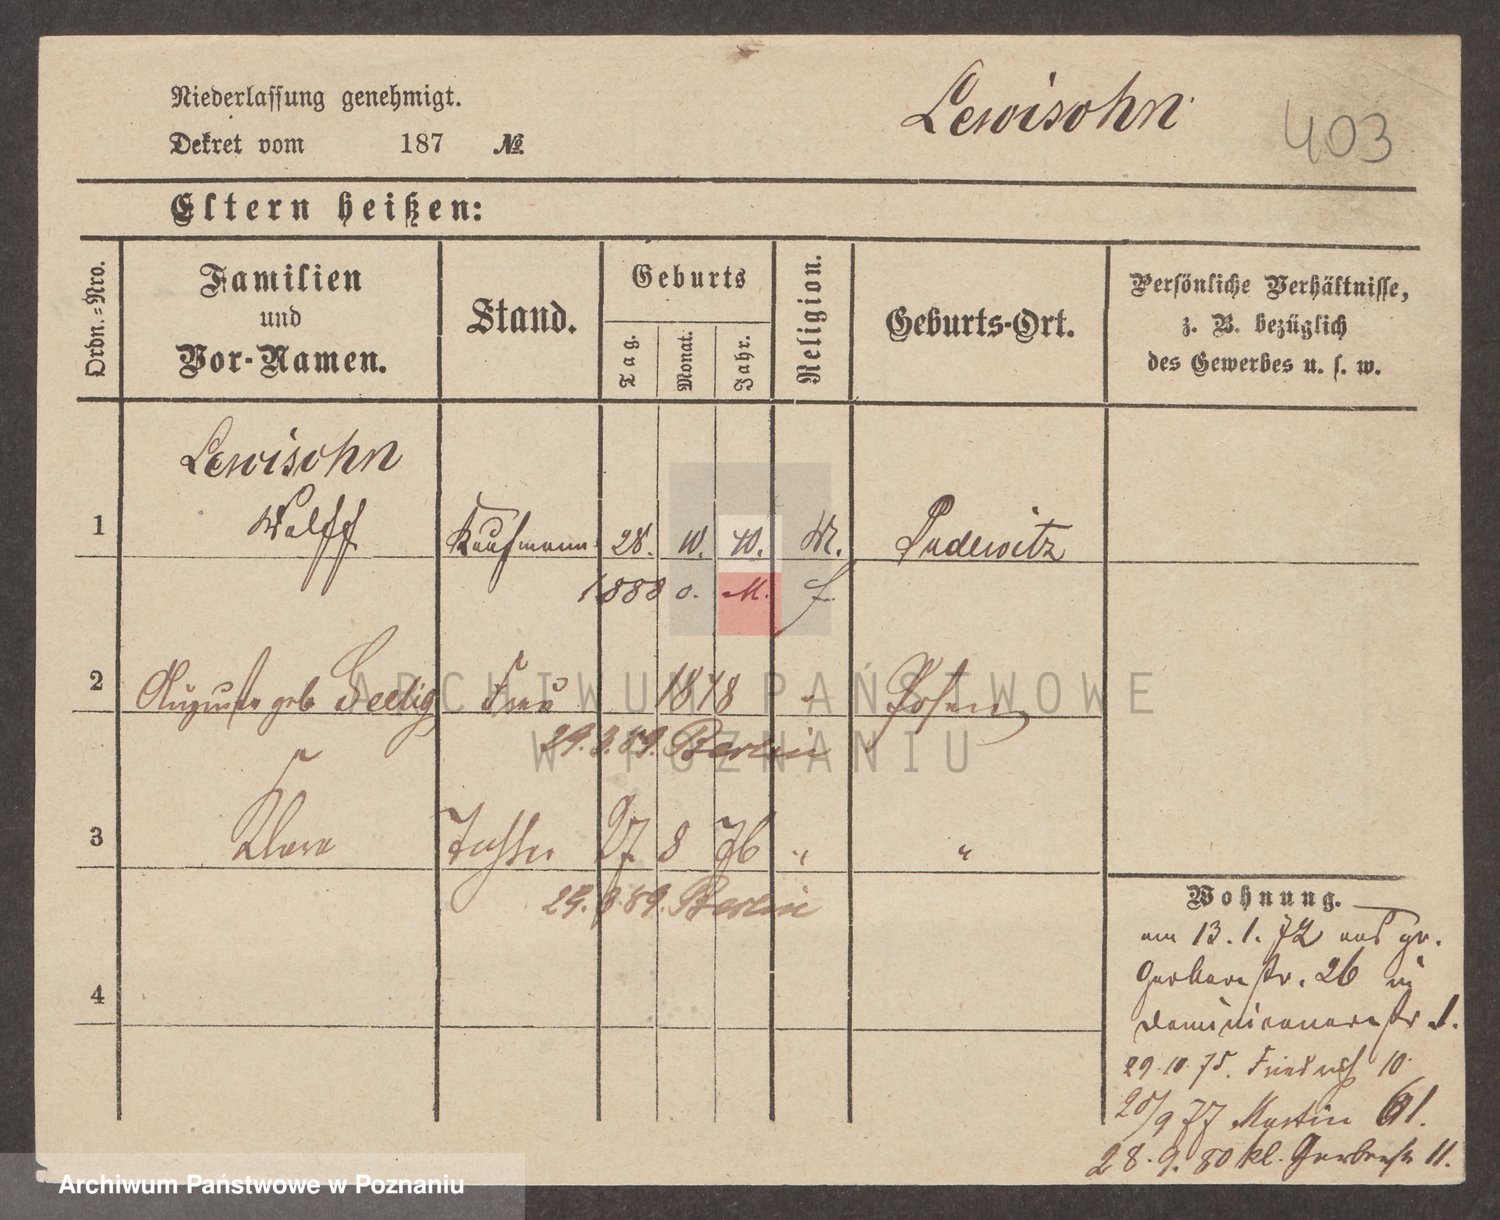 Niederlassung genehmigt.
Lewisohn
403
Dekret vom 187 №
Eltern heißen:
Ordn.=Nro.
Familien
und
Vor-Namen.
Stand.
Geburts
Tag.
Monat.
Jahr.
Religion.
Geburts-Ort.
Persönliche Verhältnisse,
z. B. bezüglich
des Gewerbes u. s. w.
Lewisohn
1 Wolff Kaufmann 28. 10. 40. M. Pudewitz
1888
2 Auguste geb Seelig Frau 1848 Posen
29.3.89. Berlin
3 Klara Tochter 27 8 76 " "
29.3.89. Berlin
4
Wohnung.
am 13.1.72 aus gr.
Gerberstr. 26 in
Dominicanerstr 1.
29.10.75. Friedrich 10
20/9 77 Martin 61.
28.9.80 kl. Gerberstr 11.
ARCHIWUM PAŃSTWOWE
W POZNANIU
Archiwum Państwowe w Poznaniu